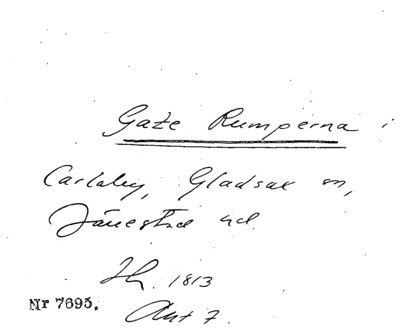 Gate Rumperna i
Carlaby, Gladsax sn,
Järrestad hd
Sk. 1813
Akt 7.
Nr 7695.